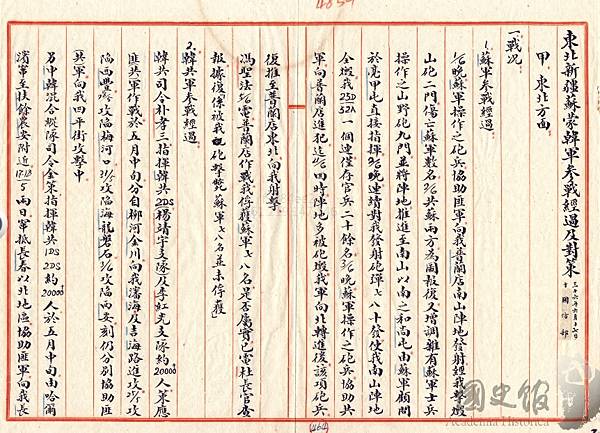 東北新疆蘇蒙韓軍參戰經過及對策
三十六年六月十七日
于國防部
甲、東北方面
一、戰况
1.蘇軍參戰經過
晚蘇軍操作之砲兵協助匪軍向我普蘭店南山陣地發射經我擊燬
山砲二門傷亡蘇軍數名 共蘇兩方為圖報復又增調雜有蘇軍士兵
操作之山野砲九門並將陣地推進至南山以南之和尚屯由蘇軍顧問
於亮甲屯直接指揮 晚連續對我發射砲彈七八十發使我南山陣地
全燬我25D/2A一個連僅存官兵二十餘名 晚蘇軍操作之砲兵協助共
軍向普蘭店進犯迄 四時陣地多被砲燬我軍向北轉進後該項砲兵
復推至普蘭店東北向我射擊
馮聖法 電普蘭店作戰我俘獲蘇軍七八名是否屬實已電杜長官查
報據復係被我砲擊斃蘇軍七八名並未俘獲
2.韓共軍參戰經過
韓共司令朴孝三指揮韓共2DS楊靖宇支隊及李紅光支隊約20000人策應
匪共軍作戰蔡五月中旬分自柳河金川向我瀋海及吉海路進攻 攻
陷西豐 攻陷梅河口 攻陷海龍磐石 攻陷西安刻仍分別協助匪
共軍向我四平街攻擊中
另中韓混合縱隊司令金策指揮韓共1DS 2DS約20000人於五月中旬由哈爾
濱竄至扶餘農安附近 17.18/5兩日竄抵長春以北地區協助匪軍向我長
(464)
國史館
Academia Historica